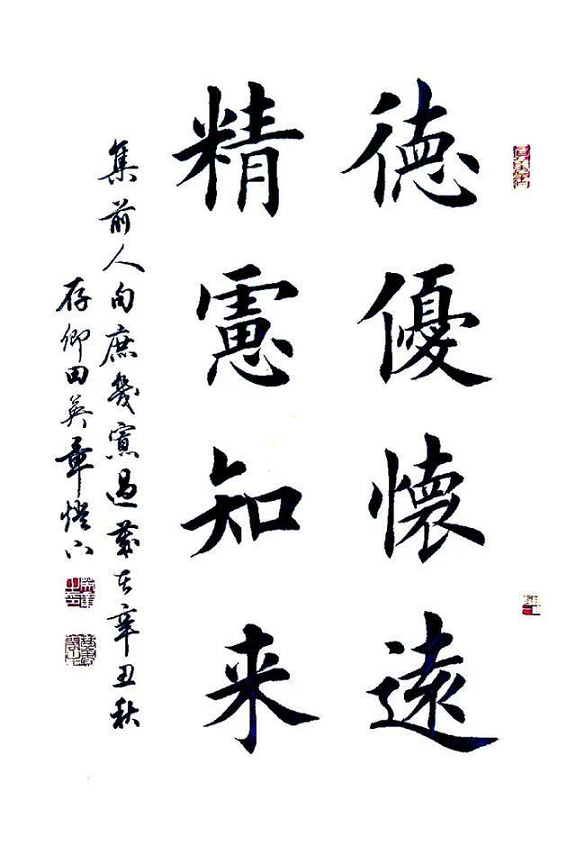 德優懷遠
精慮知来
集前人句庶幾寡過歲在辛丑秋
存卿田英章燈下